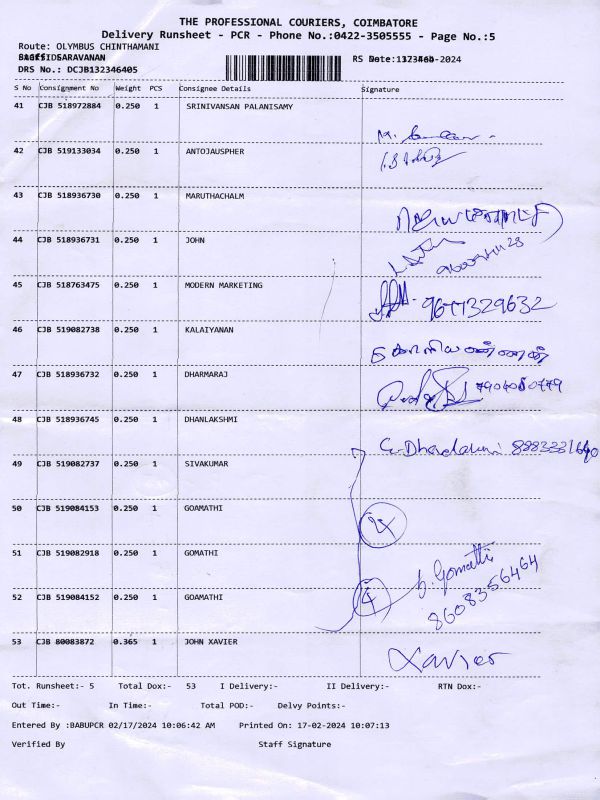 THE PROFESSIONAL COURIERS, COIMBATORE
Delivery Runsheet - PCR - Phone No.:0422-3505555 - Page No.:5
Route: OLYMBUS CHINTHAMANI
SARAVANAN
RS -2024
DRS No.: DCJB132346405
S No Consignment No Weight PCS Consignee Details Signature
41 CJB 518972884 0.250 1 SRINIVANSAN PALANISAMY
42 CJB 519133034 0.250 1 ANTOJAUSPHER
43 CJB 518936730 0.250 1 MARUTHACHALM
44 CJB 518936731 0.250 1 JOHN
45 CJB 518763475 0.250 1 MODERN MARKETING 9677329632
46 CJB 519082738 0.250 1 KALAIYANAN
47 CJB 518936732 0.250 1 DHARMARAJ
48 CJB 518936745 0.250 1 DHANLAKSHMI
49 CJB 519082737 0.250 1 SIVAKUMAR
50 CJB 519084153 0.250 1 GOAMATHI
51 CJB 519082918 0.250 1 GOMATHI Gomathi
52 CJB 519084152 0.250 1 GOAMATHI 4 8608356464
53 CJB 80083872 0.365 1 JOHN XAVIER Xavier
Tot. Runsheet:- 5 Total Dox:- 53 I Delivery:- II Delivery:- RTN Dox:-
Out Time:- In Time:- Total POD:- Delvy Points:-
Entered By :BABUPCR 02/17/2024 10:06:42 AM Printed On: 17-02-2024 10:07:13
Verified By Staff Signature